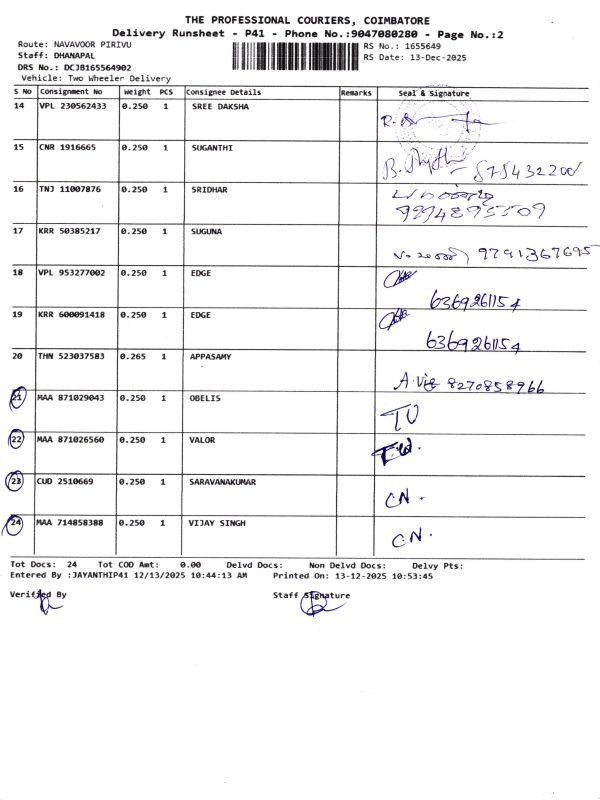 THE PROFESSIONAL COURIERS, COIMBATORE
Delivery Runsheet - P41 - Phone No.:9047080280 - Page No.:2
Route: NAVAVOOR PIRIVU
RS No.: 1655649
Staff: DHANAPAL
RS Date: 13-Dec-2025
DRS No.: DCJB165564902
Vehicle: Two Wheeler Delivery
S No Consignment No Weight PCS Consignee Details Remarks Seal & Signature
14 VPL 230562433 0.250 1 SREE DAKSHA
15 CNR 1916665 0.250 1 SUGANTHI
16 TNJ 11007876 0.250 1 SRIDHAR
17 KRR 50385217 0.250 1 SUGUNA 9791367695
18 VPL 953277002 0.250 1 EDGE 6369261154
19 KRR 600091418 0.250 1 EDGE 6369261154
20 THN 523037583 0.265 1 APPASAMY 8270858966
21 MAA 871029043 0.250 1 OBELIS
22 MAA 871026560 0.250 1 VALOR
23 CUD 2510669 0.250 1 SARAVANAKUMAR CN.
24 MAA 714858388 0.250 1 VIJAY SINGH CN.
Tot Docs: 24 Tot COD Amt: 0.00 Delvd Docs: Non Delvd Docs: Delvy Pts:
Entered By :JAYANTHIP41 12/13/2025 10:44:13 AM Printed On: 13-12-2025 10:53:45
Verified By Staff Signature